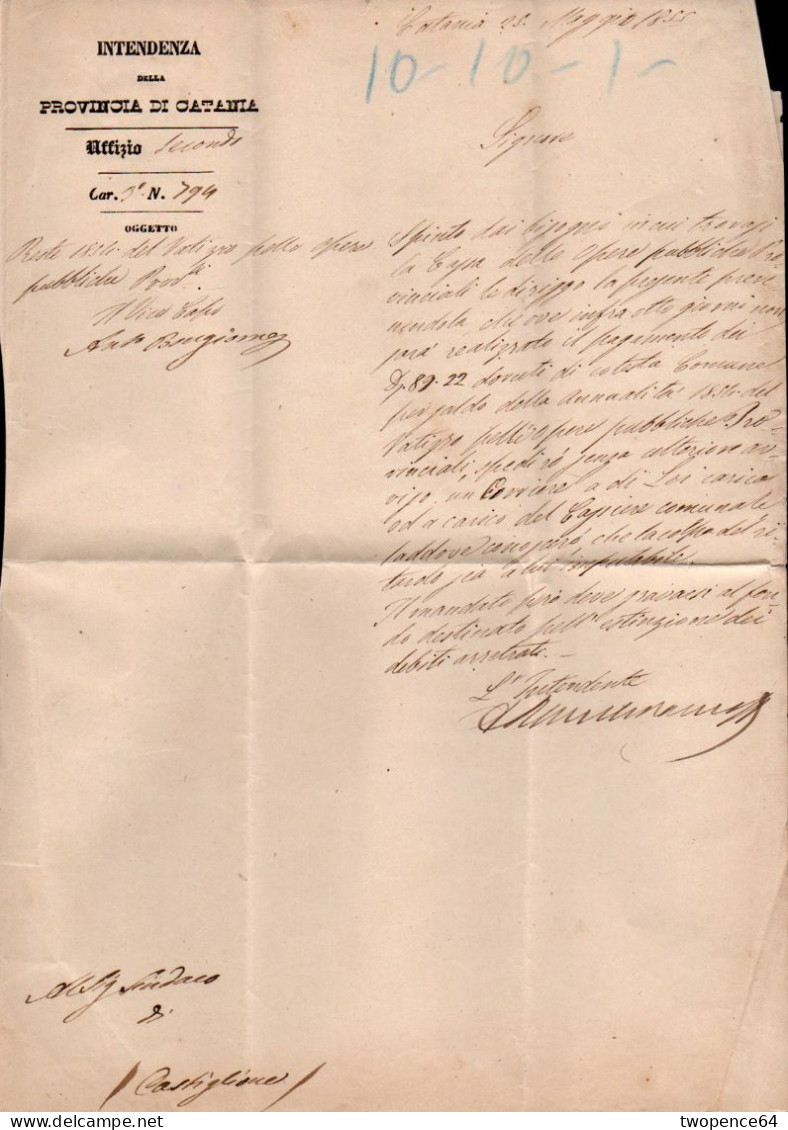 INTENDENZA
DELLA
PROVINCIA DI CATANIA
Uffizio Secondo
Car. 3° N. 794
OGGETTO
Reste 1854 del Ratizzo pelle opere
pubbliche Prov.li
Il Vice Capo
Catania 25. Maggio 1855
10-10-1-
Signore
Spinto dai bisogni in cui trovasi
la Cassa delle Opere pubbliche Pro-
vinciali le dirigo la presente preve-
nendola che ove infra otto giorni non
sarà realizzato il pagamento dei
D. 89.22 dovuti di cotesta Comune
per saldo della Annualità 1854 del
Ratizzo pelle opere pubbliche Pro-
vinciali, spedirò senza ulteriore av-
viso un Corriere a di Lei carico
od a carico del Cassiere comunale
laddove conoscerò che la colpa del ri-
tardo sia a lui imputabile.
Il mandato però deve gravarsi al fon-
do destinato pell'estinzione dei
debiti arretrati.
L'Intendente
Al Sig Sindaco
di
Castiglione
twopence64